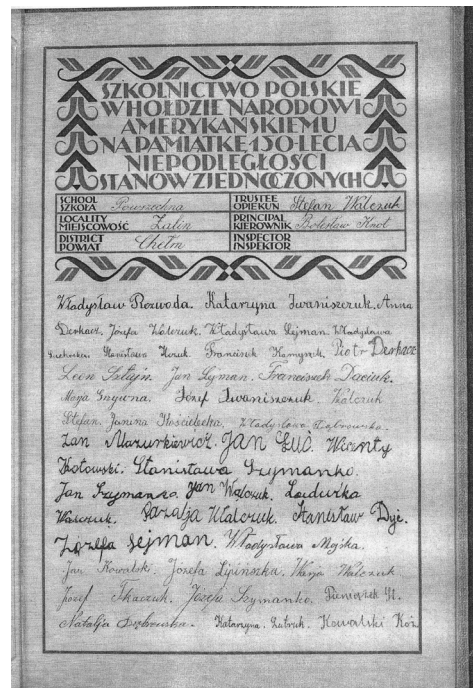 SZKOLNICTWO POLSKIE
W HOŁDZIE NARODOWI
AMERYKAŃSKIEMU
NA PAMIĄTKĘ 150-LECIA
NIEPODLEGŁOŚCI
STANÓW ZJEDNOCZONYCH
SCHOOL SZKOŁA Powszechna TRUSTEE OPIEKUN Stefan Walczuk
LOCALITY MIEJSCOWOŚĆ Zalin PRINCIPAL KIEROWNIK Bolesław Knot
DISTRICT POWIAT Chełm INSPECTOR INSPEKTOR
Władysław Rozwoda. Katarzyna Iwaniszczuk. Anna
Derkacz. Józefa Walczuk. Władysława Sejman. Władysława
Stanisława Franciszek Kamyszek. Piotr Derkacz
Leon Sztejn. Jan Szyman. Franciszek Daciuk.
Józef Iwaniszczuk. Walczuk
Stefan. Janina Kościelecka. Władysława Dąbrowska.
Jan Mazurkiewicz. Jan Guć. Wicenty
Kotowski. Stanisława Szymanko.
Jan Szymanko. Jan Walczuk.
Walczuk. Walczuk. Stanisław Dyć.
Józefa Sejman. Władysława Mojska.
Jan Kowalski. Józefa Lipinszka. Marja Walczuk
Józef Tkaczuk. Józefa Szymanko. Paniaszek St.
Natalja Dąbrowska. Katarzyna. Kowalski Kaź.